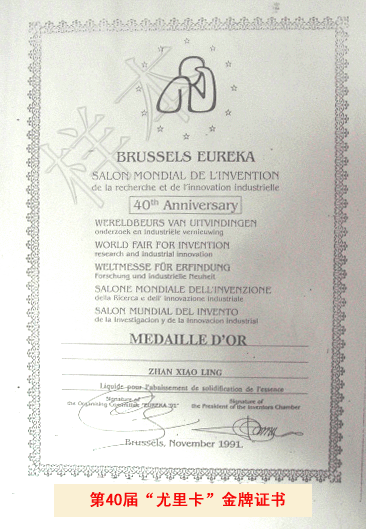 样本
BRUSSELS EUREKA
SALON MONDIAL DE L'INVENTION
de la recherche et de l'innovation industrielle
40th Anniversary
WERELDBEURS VAN UITVINDINGEN
onderzoek en industriële vernieuwing
WORLD FAIR FOR INVENTION
research and industrial innovation
WELTMESSE FÜR ERFINDUNG
Forschung und industrielle Neuheit
SALONE MONDIALE DELL'INVENZIONE
della Ricerca e dell' innovazione industriale
SALON MUNDIAL DEL INVENTO
de la Investigacion y de la innovacion industrial
MEDAILLE D'OR
ZHAN XIAO LING
Liquide pour l'abaissement de solidification de l'essence
Signature of
the Organising Committee "EUREKA 91"
Signature of
the President of the Inventors Chamber
Brussels, November 1991.
第40届“尤里卡”金牌证书